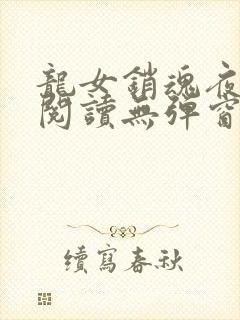 龍女銷魂夜
閱讀無彈窗
續寫春秋